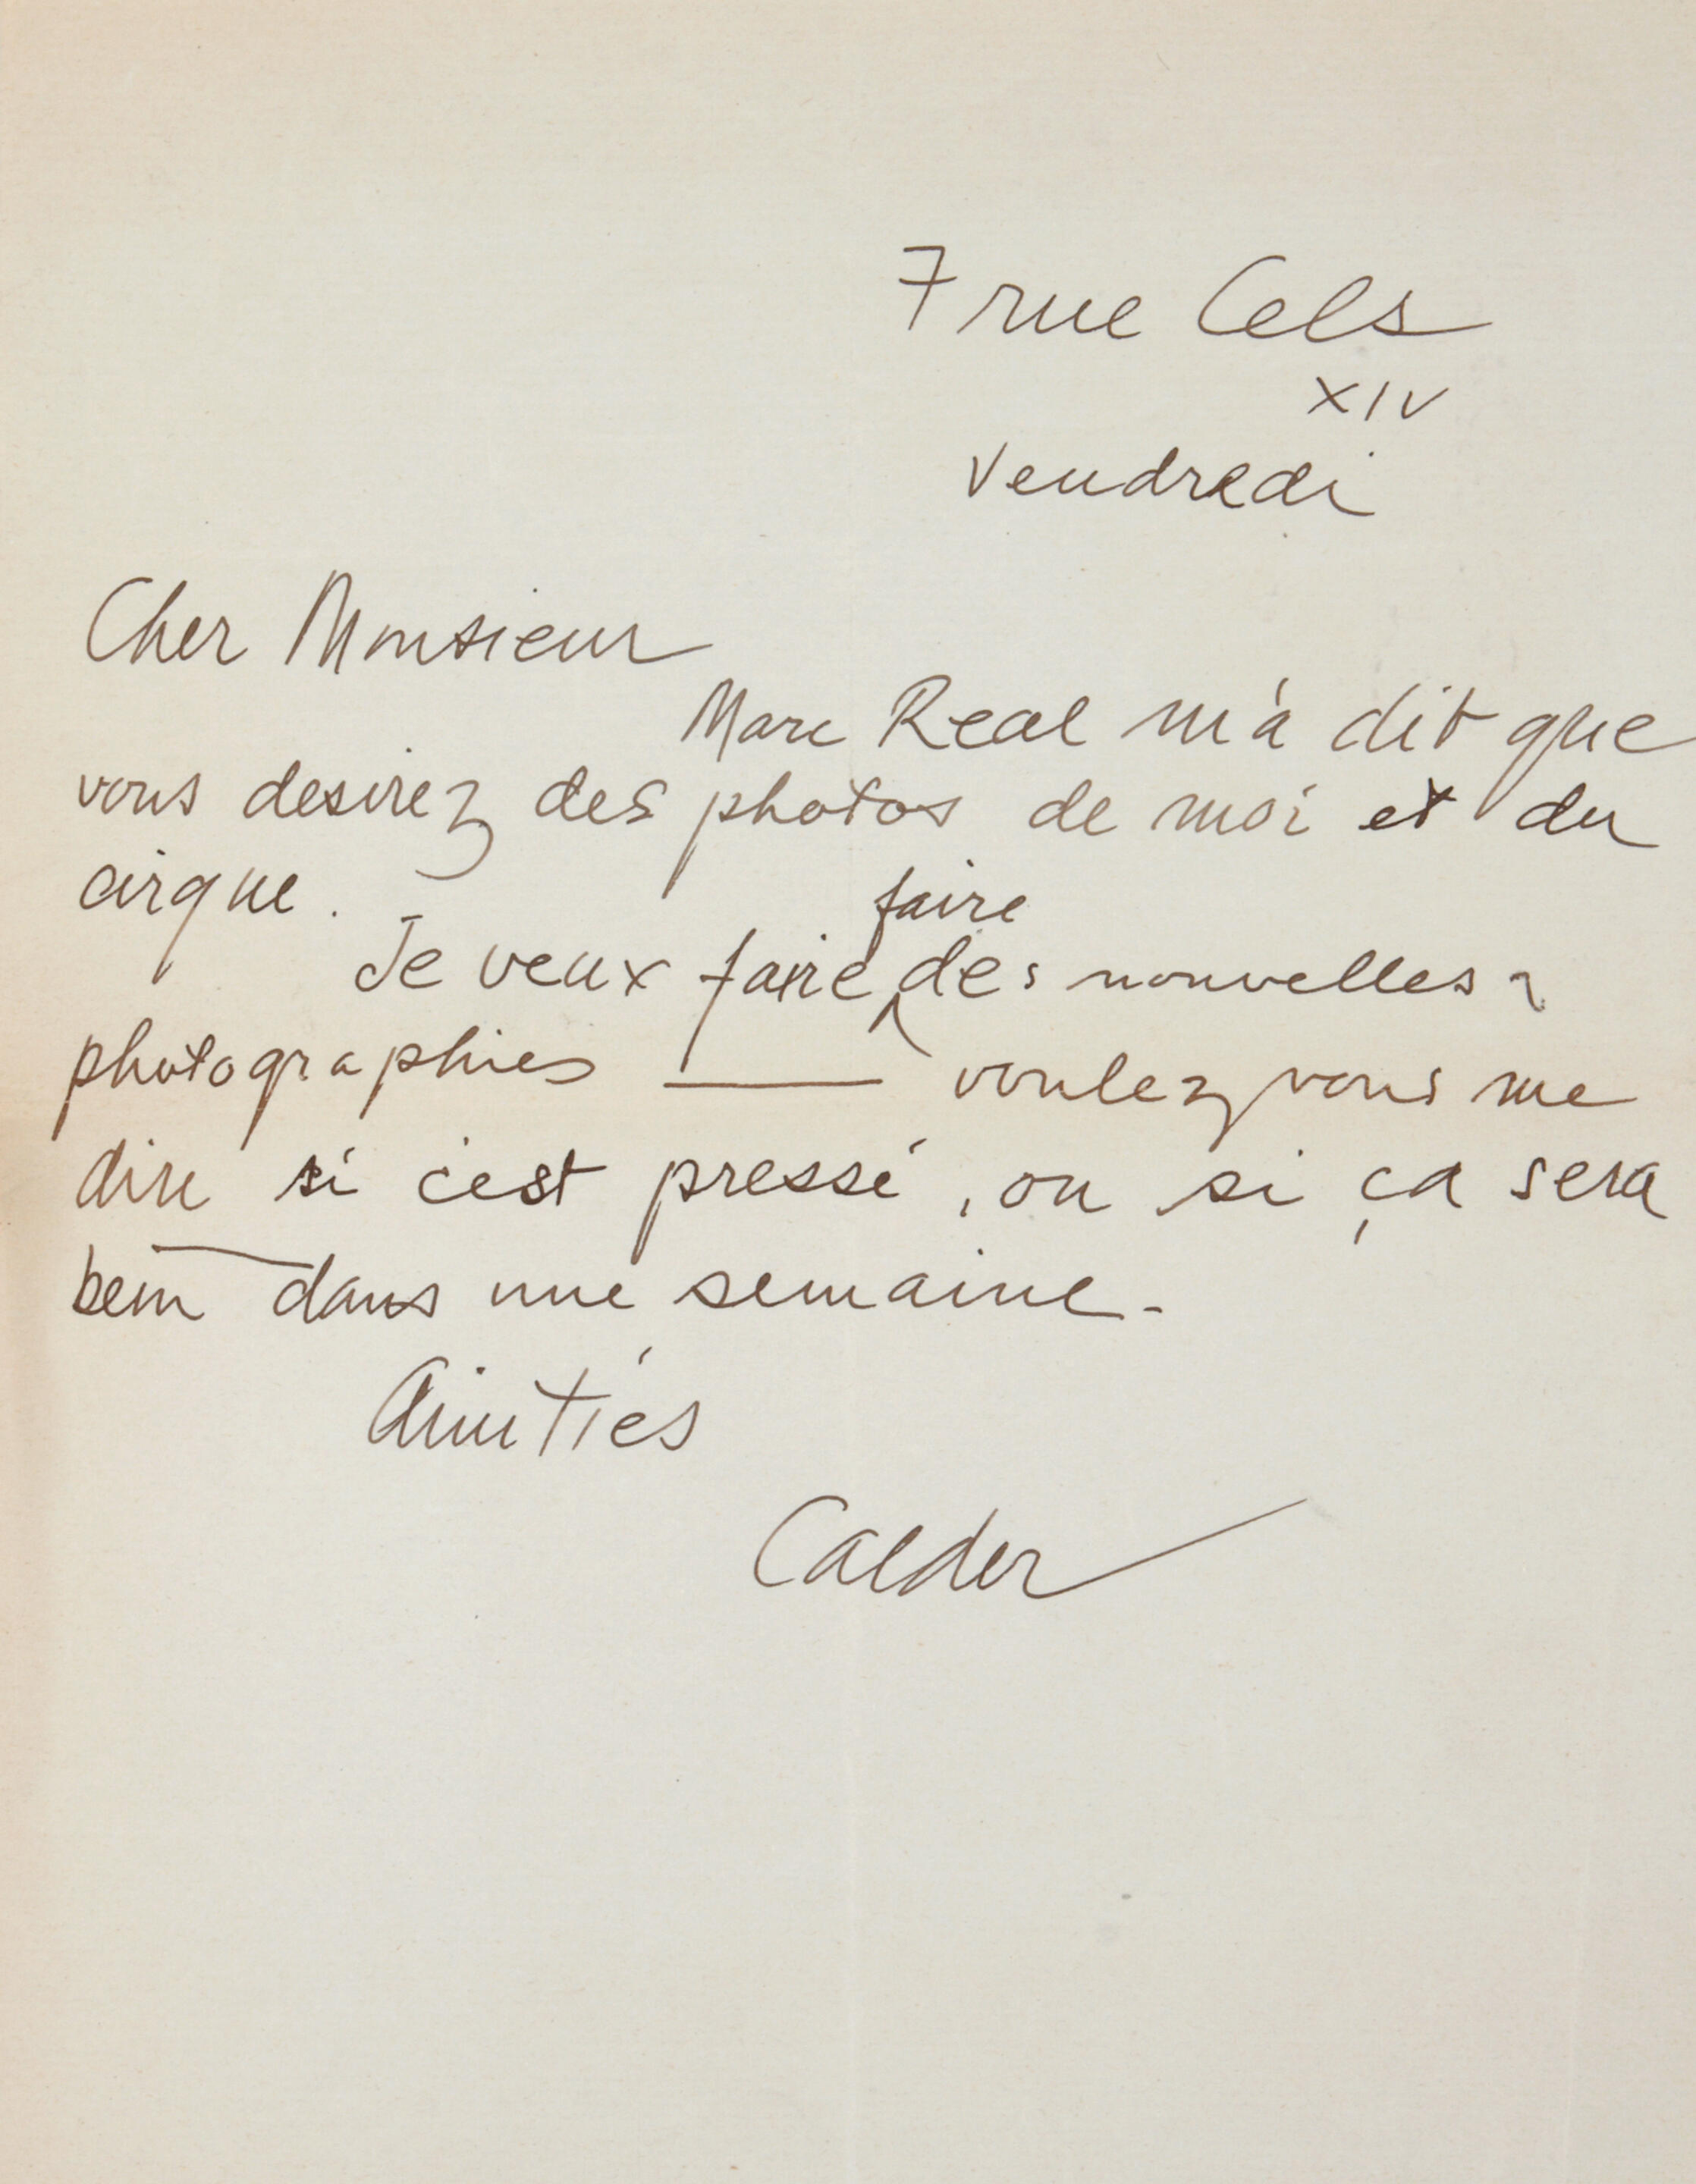 7 rue Cels
XIV
Vendredi
Cher Monsieur
Marc Real m'a dit que
vous desirez des photos de moi et du
cirque.
faire
Je veux faire des nouvelles
photographies — voulez vous me
dire si c'est pressé, ou si ça sera
bein dans une semaine.
Amitiés
Calder